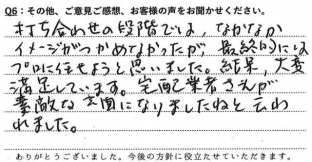 Q6：その他、ご意見ご感想、お客様の声をお聞かせください。
打ち合わせの段階では、なかなか
イメージがつかめなかったが 最終的には
プロに任せようと思いました。結果、大変
満足しています。宅配業者さんが
素敵な玄関になりましたねと云わ
れました。
ありがとうございました。今後の方針に役立たせていただきます。